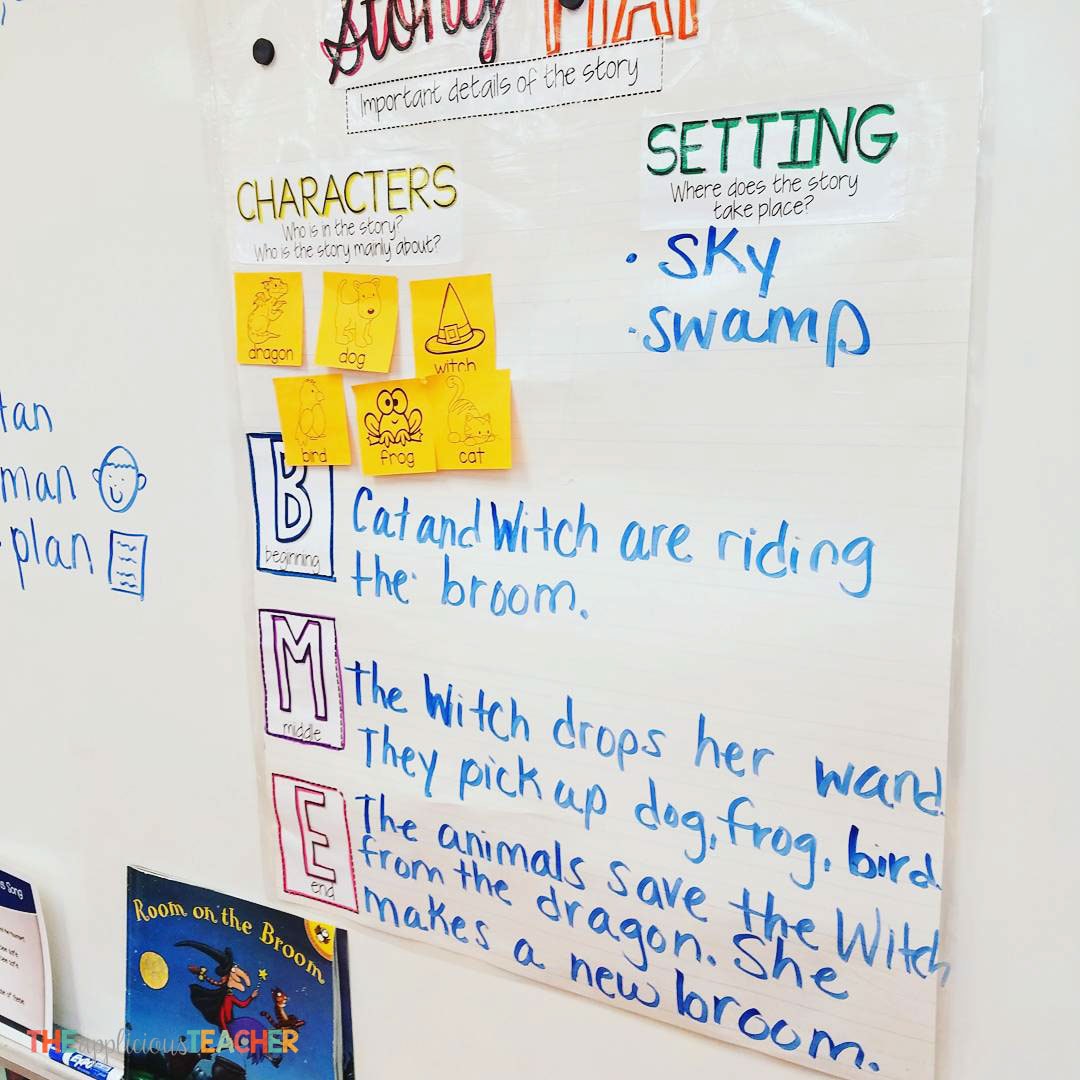 Story MAP
Important details of the story
CHARACTERS
Who is in the story?
Who is the story mainly about?
dragon
dog
witch
bird
frog
cat
SETTING
Where does the story
take place?
• Sky
• swamp
B
beginning
Cat and Witch are riding
the broom.
M
middle
the Witch drops her wand.
They pick up dog, frog, bird.
E
end
The animals save the Witch
from the dragon. She
makes a new broom.
tan
man
plan
Song
Room on the Broom
THE appliciousTEACHER
EXPO